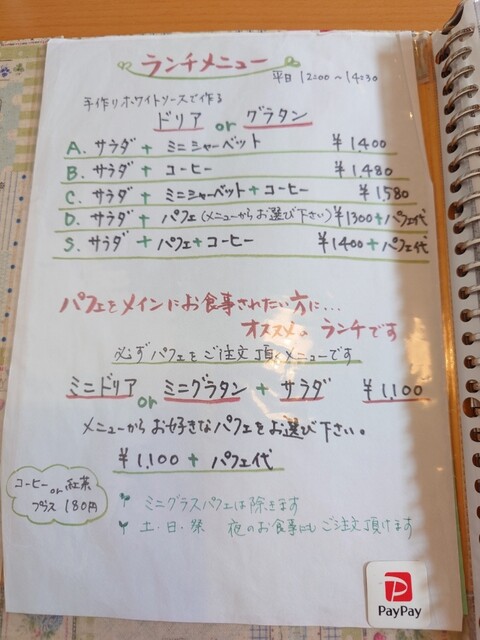 ランチメニュー
平日 12:00～14:30
手作りホワイトソースで作る
ドリア or グラタン
A. サラダ + ミニシャーベット ¥1400
B. サラダ + コーヒー ¥1,480
C. サラダ + ミニシャーベット + コーヒー ¥1,580
D. サラダ + パフェ(メニューからお選び下さい) ¥1300+パフェ代
S. サラダ + パフェ + コーヒー ¥1400+パフェ代
パフェをメインにお食事されたい方に…
オススメなランチです
必ずパフェをご注文頂くメニューです
ミニドリア or ミニグラタン + サラダ ¥1,100
メニューからお好きなパフェをお選び下さい。
¥1,100 + パフェ代
コーヒー or 紅茶
プラス 180円
ミニグラスパフェは除きます
土・日・祭 夜のお食事にもご注文頂けます
PayPay